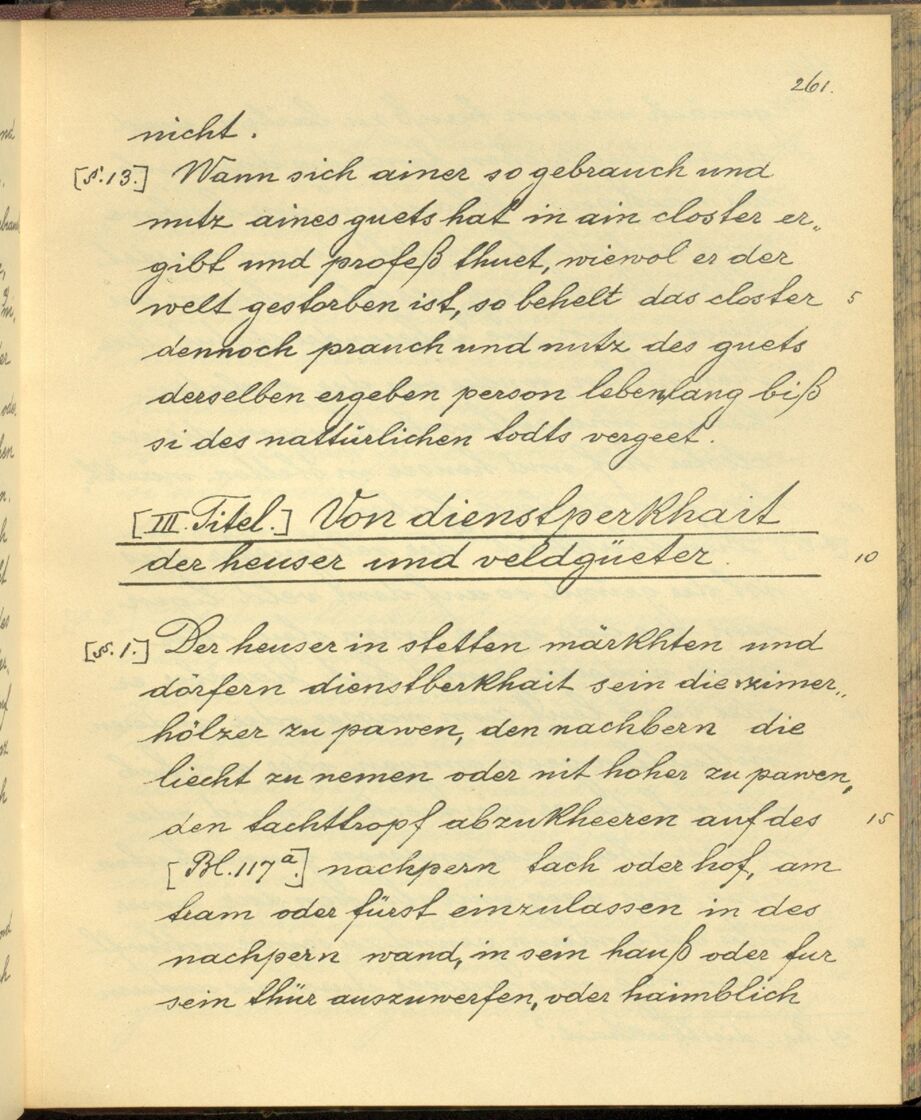 261.
nicht.
[§. 13.] Wann sich ainer so gebrauch und
nutz aines guets hat in ain closter er„
gibt und profeß thuet, wiewol er der
welt gestorben ist, so behelt das closter 5
dennoch prauch und nutz des guets
derselben ergeben person lebenlang biß
si des nattürlichen todts vergeet.
[III. Titel.] Von dienstperkhait
der heuser und veldgüeter. 10
[§. 1.] Der heuser in stetten märkhten und
dörfern dienstberkhait sein die zimer„
hölzer zu pawen, den nachbern die
liecht zu nemen oder nit hoher zu pawen,
den tachttropf abzukheeren auf des 15
[Bl. 117a.] nachpern tach oder hof, am
tram oder fürst einzulassen in des
nachpern wand, in sein hauß oder fur
sein thür auszuwerfen, oder haimblich